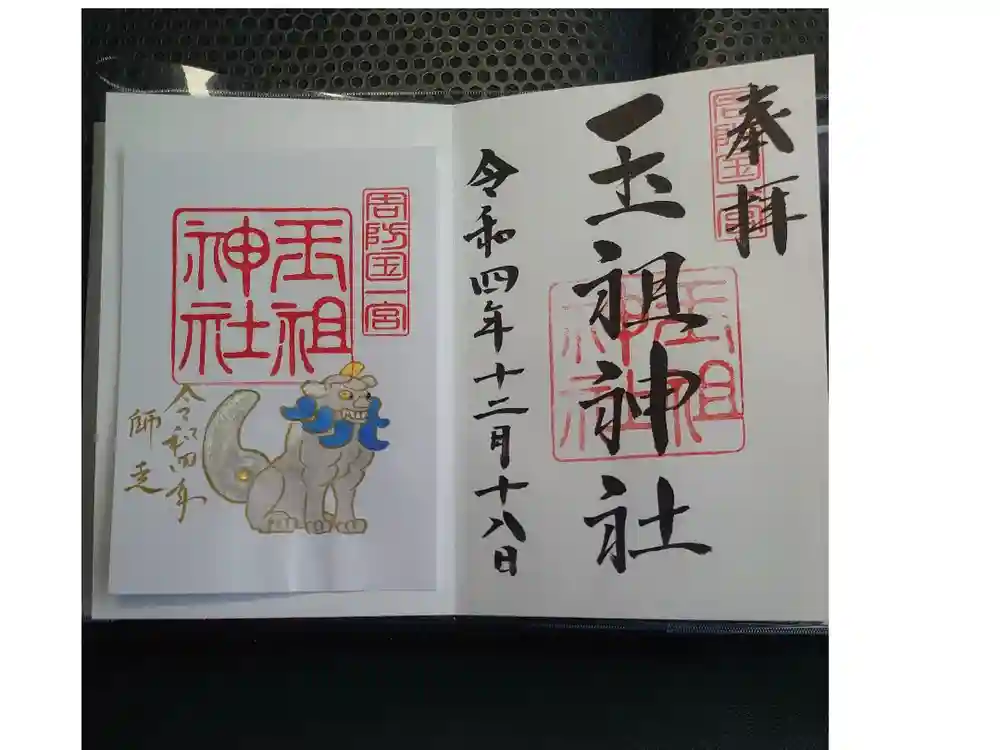 奉拝
周防国一宮
玉祖神社
玉祖
神社
令和四年十二月十八日
周防国一宮
玉祖
神社
令和四年
師走